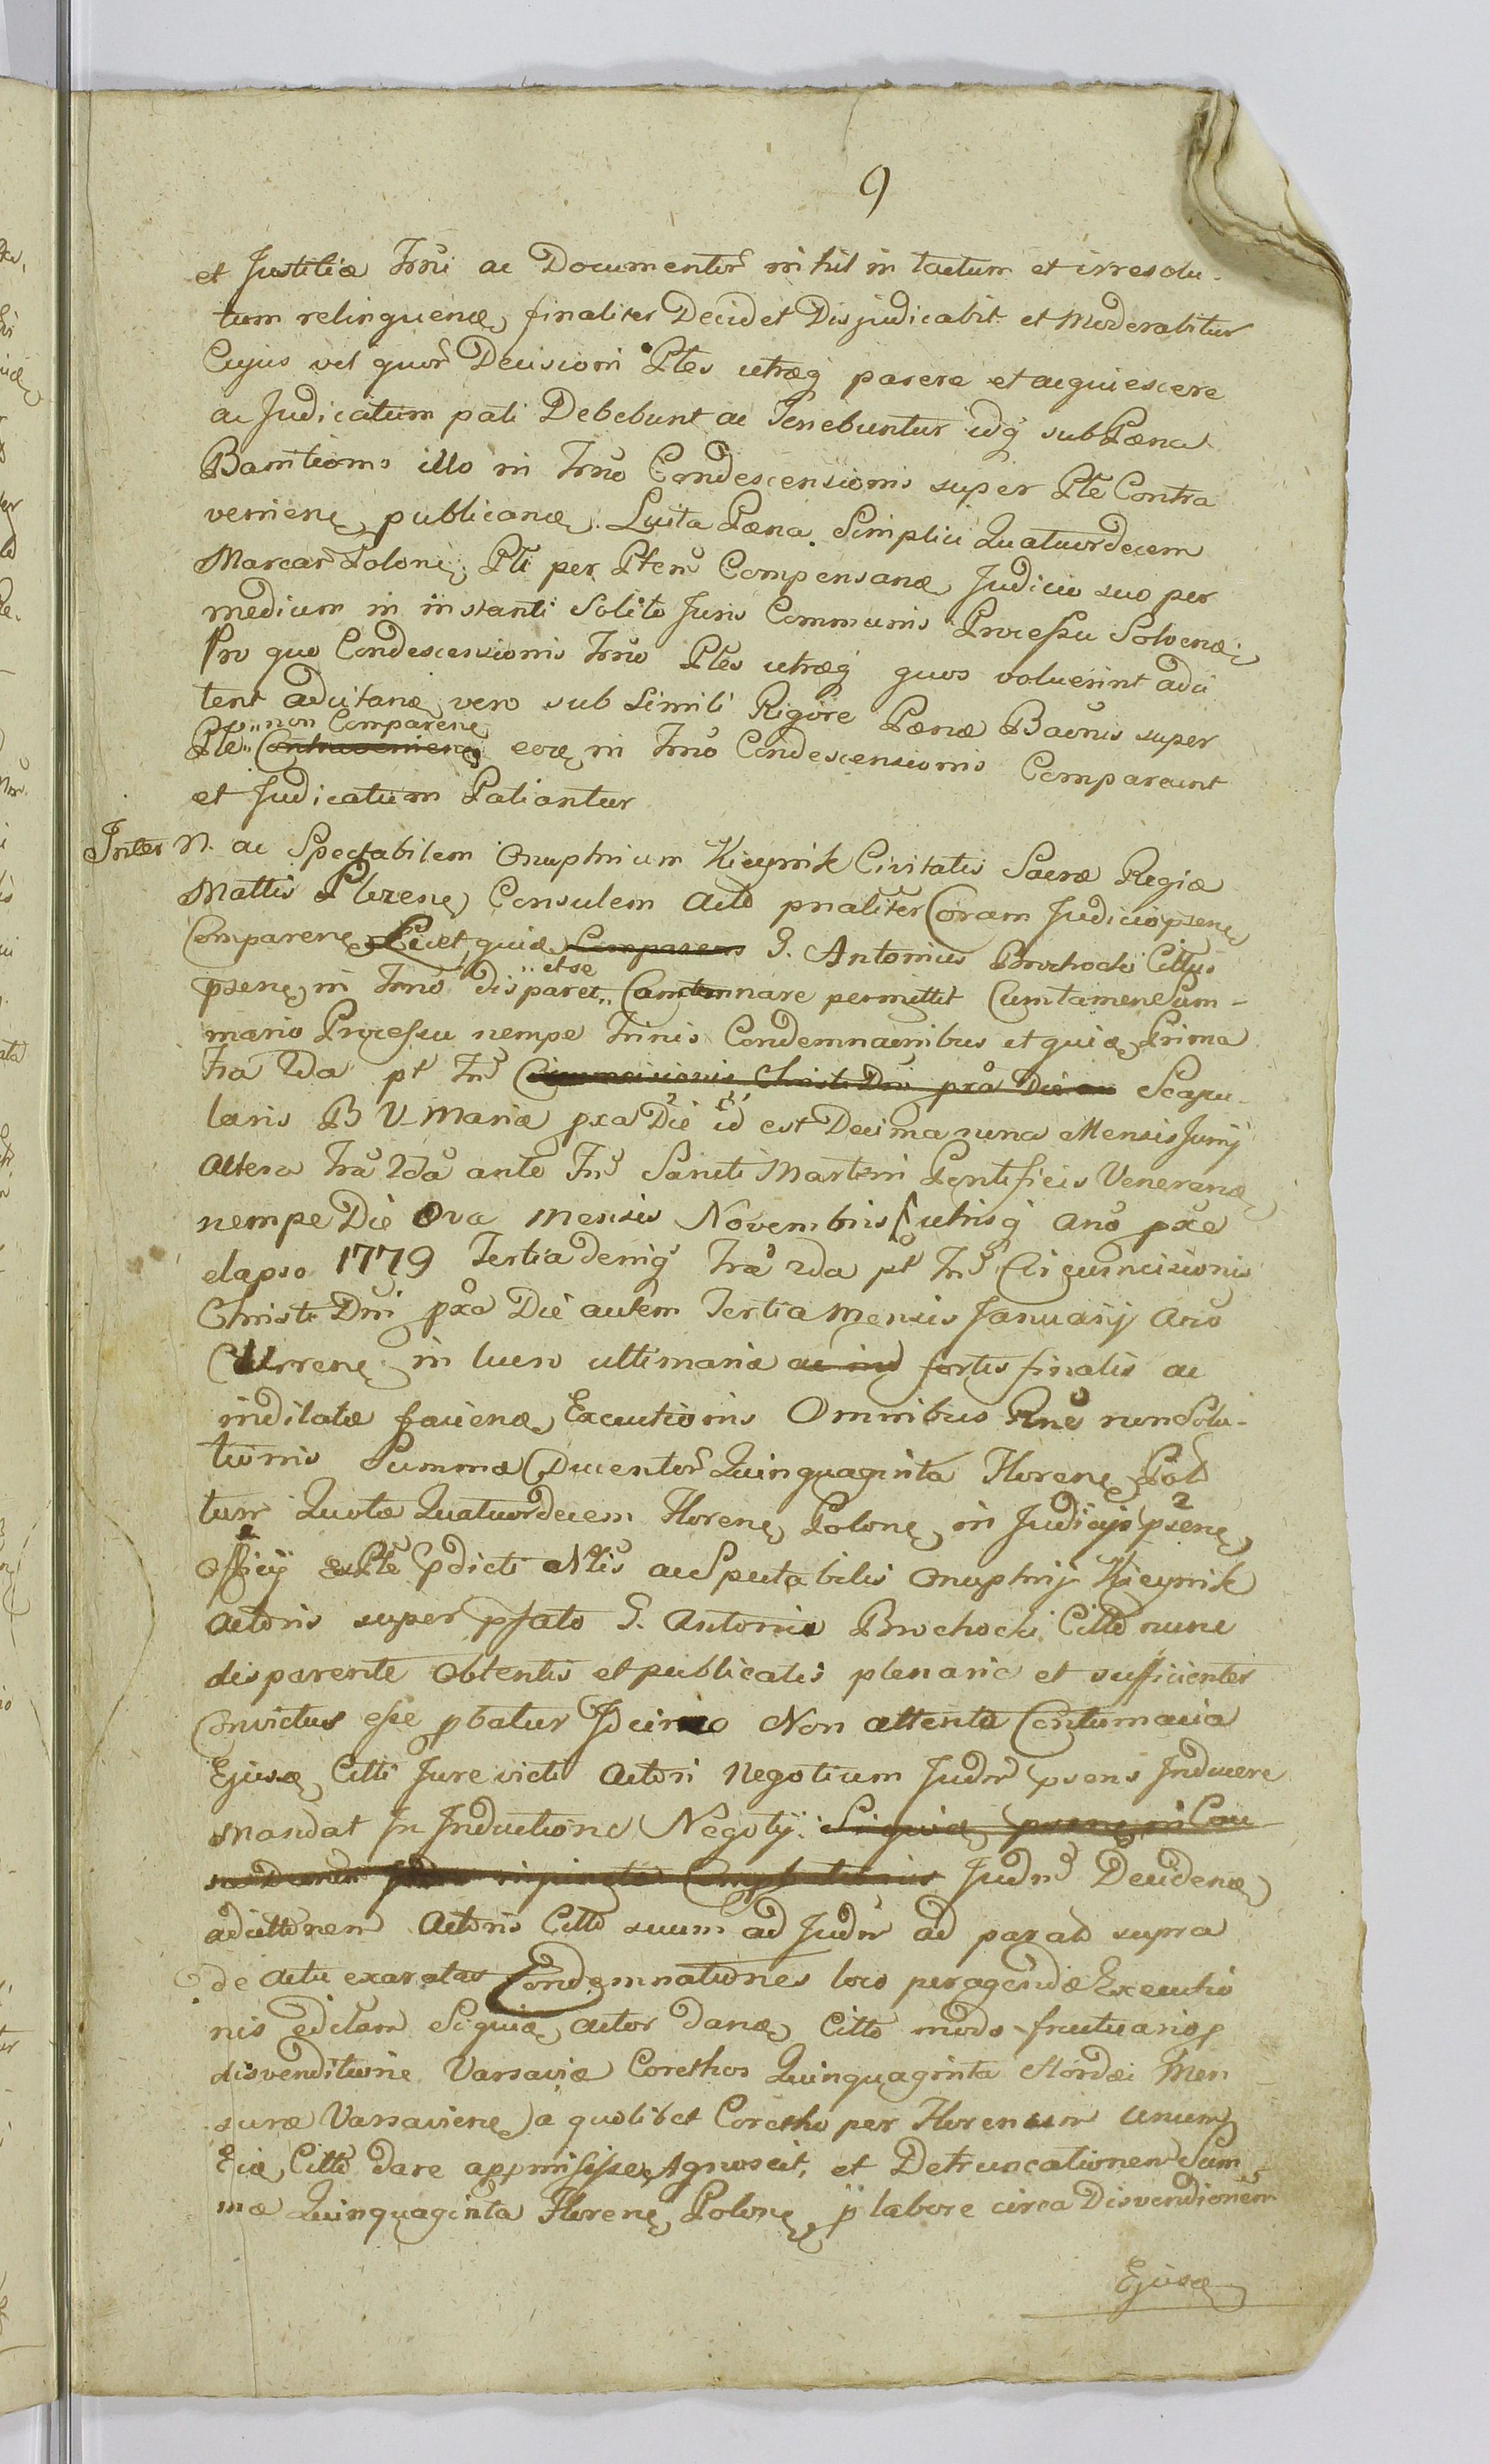 9
et Justitiæ Trni ac Documentor nihil in tactum et irresolu-
tum relinquenæ, finaliter Decidet Disjudicabit et Moderabitur
Cujus vel quor Decisioni Ptes utræq parere et acquiescere
ac Judicatum pati Debebunt ac Tenebuntur idq sub Pæna
Bannitionis illo in Trno Condescensionis super Pte Contra
veniene, publicanæ. Luita Pæna Simplici Quatuordecem
Marcar Polone, Pti per Ptem Compensanæ, Judicio suo per
medium in instanti Solito Juris Communis Processu Solvenæ,
Pro quo Condescensionis Trno Ptes utræq quos voluerint adci
tent adcitanæ, vero sub Simili Rigore Pænæ Baonis super
non Comparene,
Pte Contraveniene, in Trno Condescensionis Compareant
et Judicatum Patiantur
Inter N. ac Spectabilem Onuphrium Kicynsk Civitatis Sacræ Regiæ
Mattis Consulem Acto pnaliter Coram Judicio psene,
Comparene, Licet quia Comparens G. Antonius Brochocki Cittus
et se
psene, in Trno disparet Condemnare permittit Cum tamen Sum-
mario Processu nempe Trinis Condemnaonibus et quia Prima
fra 2da pt Circumcisionis Christi Dni pxa Die Scapu-
laris B V Mariæ pxa Die id est Decima nona Mensis Junij
Altera fra 2da ante Sancti Martini Pontificis Veneranæ,
nempe Die 8va Mensis Novembris utrisq Ano pxe
elapso 1779 Tertia deniq fra 2da pt Circumcisionis
Christi Dni pxa Die autem Tertia Mensis Januarij Ano
Currene, in lucro ultimariæ ac fortis finalis ac
indilatæ faciene, Executionis Omnibus Rne non Solu-
tionis Summæ Ducentor Quinquaginta Florene, Pol
tum Quotæ Quatuordecem Florene, Polone, in Judicijs psene,
Officij ex Pte pdicti Nlis ac Spectabilis Onuphrij Kicynsk
Actoris super pfato G. Antonio Brochocki Citto nunc
disparente Obtentis et publicatis plenarie et sufficienter
Convictus esse pbatur Idcirco Non attenta Contumacia
Ejusæ, Citti Jure victi Actori Negotium Judm psens Inducere
mandat In Inductione Negotij. Siquidæ, psene, in Cau
Judm Decidenæ,
adcittonem Actoris Citto suum ad Judm ad parato supra
de Actu exaratas Condemnationes loco peragendæ Executio
nis editam Siquidæ, actor danæ, Citto modo fructuario
disvenditione Varsaviæ Corethos Quinquaginta Hordei Men
suræ Varsaviene, a quolibet Coretho per Florenum unum
Eiæ, Citto dare appromisisse Agnoscit, et Detruncationem Sum
mæ Quinquaginta Florene, Polone, p labore circa Disvendionem
Ejusæ,